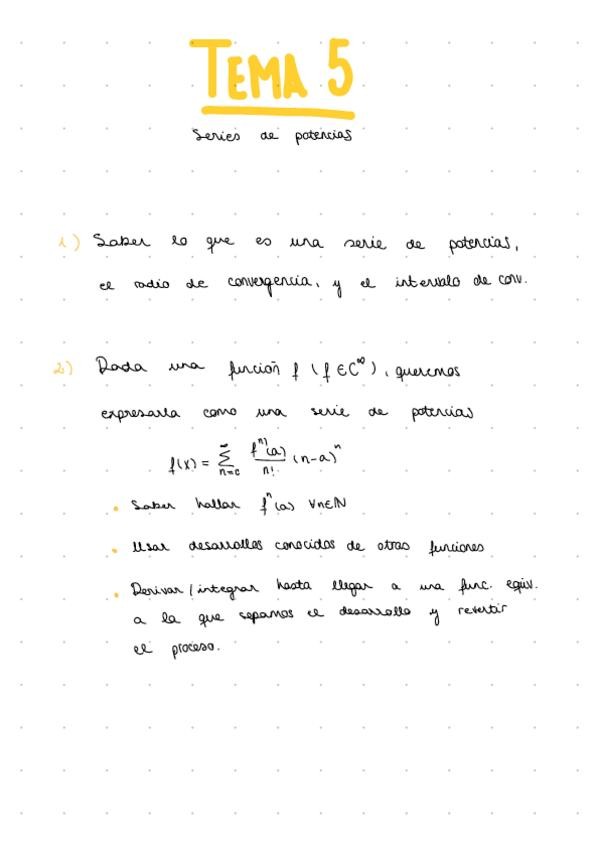 TEMA 5
Series de potencias
1) Saber lo que es una serie de potencias,
el radio de convergencia, y el intervalo de conv.
2) Dada una función f (f ∈ C^∞), queremos
expresarla como una serie de potencias
f(x) = ∑_{n=0}^{∞} f^{n)}(a)/n! (n-a)^n
• Saber hallar f^n(a) ∀n∈ℕ
• Usar desarrollos conocidos de otras funciones
• Derivar / integrar hasta llegar a una func. equiv.
a la que sepamos el desarrollo y revertir
el proceso.